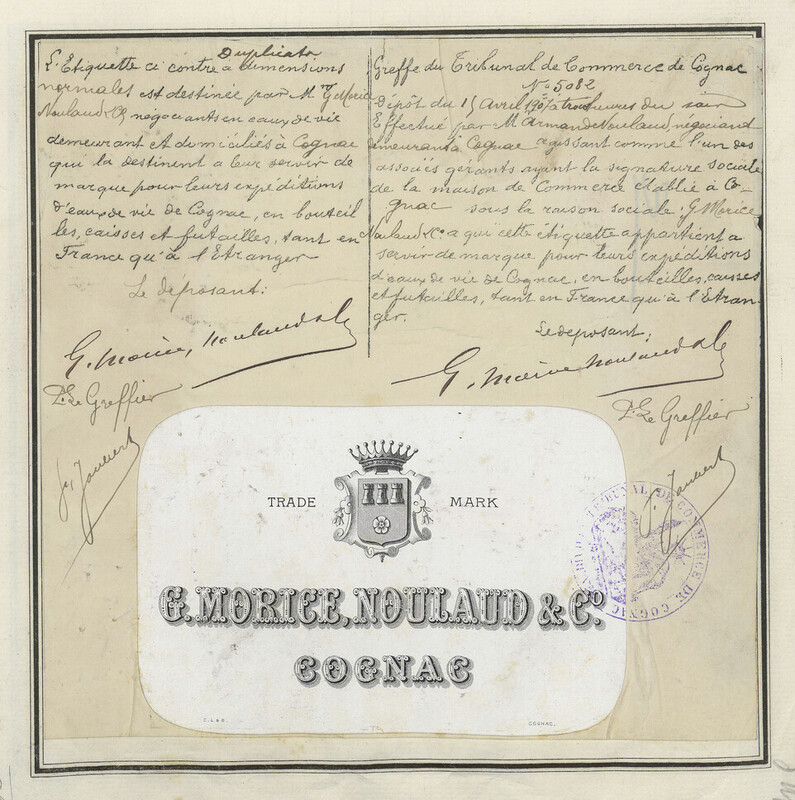 Duplicata
L'Etiquette ci contre a dimensions
normales est destinée par Mrs G Morice
Noulaud & Co négociants en eaux de vie
demeurant et domiciliés à Cognac
qui la destinent a leur servir de
marque pour leurs expéditions
d'eaux de vie de Cognac, en bouteil
les, caisses et futailles, tant en
France qu'à l'Etranger
Le déposant:
G. Morice, Noulaud & Co
Pr. Le Greffier
Greffe du Tribunal de Commerce de Cognac
No 5082
Dépôt du 15 Avril 1907 à trois heures du soir
Effectué par M Armand Noulaud, négociant
demeurant à Cognac agissant comme l'un des
associés gérants ayant la signature sociale
de la maison de Commerce établie à Co-
gnac sous la raison sociale: G Morice
Noulaud & Co a qui cette étiquette appartient a
servir de marque pour leurs expéditions
d'eaux de vie de Cognac, en bouteilles, caisses
et futailles, tant en France qu'à l'Etran-
ger.
Le déposant:
G. Morice Noulaud & Co
Pr. Le Greffier
TRADE MARK
G. MORICE, NOULAUD & Co.
COGNAC
C. L & C. COGNAC.
TRIBUNAL DE COMMERCE DE COGNAC